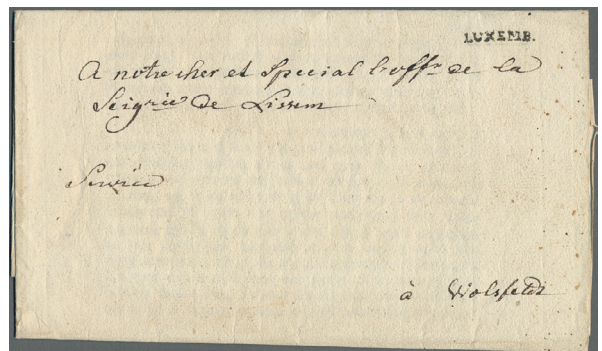 LUXEMB.
A notre cher et Special l'offr. de la
Seigrie de Lissem
Service
à Wolsfeldt